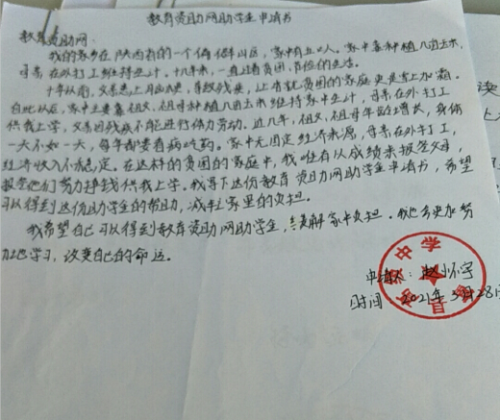 教育资助网助学金申请书
教育资助网:
我的家乡在陕西省的一个偏僻山区,家中有五口人。家中靠种植几亩玉米,
母亲在外打工维持生计。十几年来,一直过着贫困、节俭的生活。
十年以前,父亲患上,导致残疾,让有贫困的家庭更是雪上加霜。
自此以后,家中主要靠祖父、祖母种植几亩玉米维持家中生计,母亲在外打工
供我上学,父亲因残疾不能进行体力劳动。近几年,祖父、祖母年龄的增长,身体
一天不如一天,每年都要看病吃药。家中无固定经济来源,母亲在外打工,
经济收入不稳定。在这样的贫困的家庭中,我唯有以成绩来报答父母,
报答他们努力挣钱供我上学。我写下这份教育资助网助学金申请书,希望
可以得到这份助学金的帮助,减轻家里的负担。
我希望自己可以得到教育资助网助学金,缓解家中负担。我也会更加努
力地学习,改变自己的命运。
中学
申请人:赵怀宇
时间:2021年3月28日